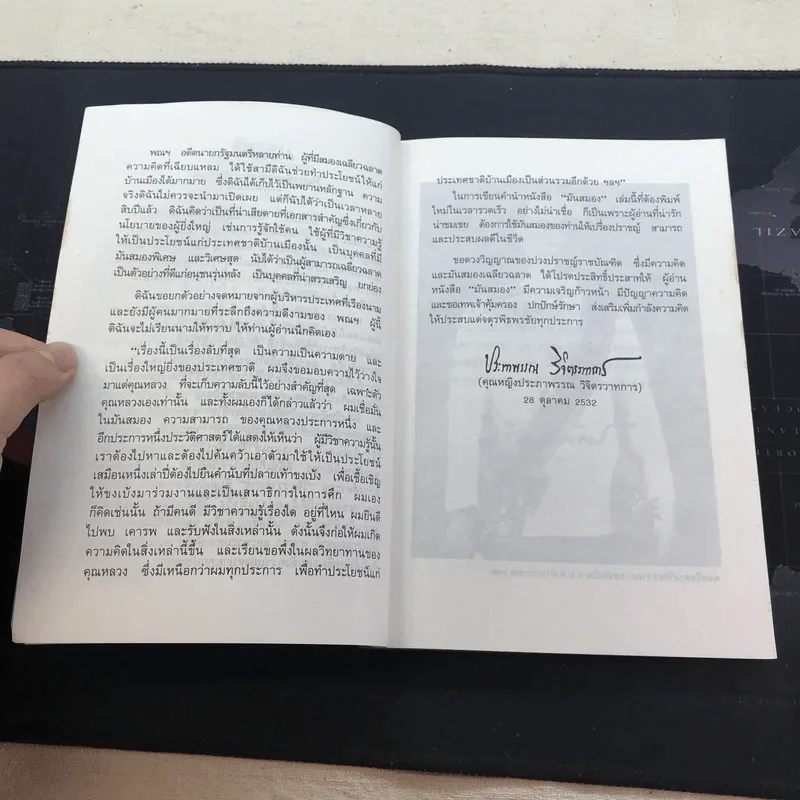 พณฯ อดีตนายกรัฐมนตรีหลายท่าน ผู้ที่มีสมองเฉลียวฉลาด
ความคิดที่เฉียบแหลม ได้ใช้สามีดิฉันช่วยทำประโยชน์ให้แก่
บ้านเมืองได้มากมาย ซึ่งดิฉันได้เก็บไว้เป็นพยานหลักฐาน ความ
จริงดิฉันไม่ควรจะนำมาเปิดเผย แต่ก็นับได้ว่าเป็นเวลาหลาย
สิบปีแล้ว ดิฉันคิดว่าเป็นที่น่าเสียดายที่เอกสารสำคัญซึ่งเกี่ยวกับ
นโยบายของผู้ยิ่งใหญ่ เช่นการรู้จักใช้คน ใช้ผู้ที่มีวิชาความรู้
ให้เป็นประโยชน์แก่ประเทศชาติบ้านเมืองนั้น เป็นบุคคลที่มี
มันสมองพิเศษ และวิเศษสุด นับได้ว่าเป็นผู้สามารถเฉลียวฉลาด
เป็นตัวอย่างที่ดีแก่อนุชนรุ่นหลัง เป็นบุคคลที่น่าสรรเสริญ ยกย่อง
ดิฉันขอยกตัวอย่างจดหมายจากผู้บริหารประเทศที่เรืองนาม
และยังมีผู้คนมากมายที่ระลึกถึงความดีงามของ พณฯ ผู้นี้
ดิฉันจะไม่เรียนนามให้ทราบ ให้ท่านผู้อ่านนึกคิดเอง
“เรื่องนี้เป็นเรื่องลับที่สุด เป็นความเป็นความตาย และ
เป็นเรื่องใหญ่ยิ่งของประเทศชาติ ผมจึงขอมอบความไว้วางใจ
มาแด่คุณหลวง ที่จะเก็บความลับนี้ไว้อย่างสำคัญที่สุด เฉพาะตัว
คุณหลวงเองเท่านั้น และทั้งผมเองก็ได้กล่าวแล้วว่า ผมเชื่อมั่น
ในมันสมอง ความสามารถ ของคุณหลวงประการหนึ่ง และ
อีกประการหนึ่งประวัติศาสตร์ได้แสดงให้เห็นว่า ผู้มีวิชาความรู้นั้น
เราต้องไปหาและต้องไปค้นคว้าเอาตัวมาใช้ให้เป็นประโยชน์
เสมือนหนึ่งเล่าปี่ต้องไปยืนคำนับที่ปลายเท้าขงเบ้ง เพื่อเชื้อเชิญ
ให้ขงเบ้งมาร่วมงานและเป็นเสนาธิการในการศึก ผมเอง
ก็คิดเช่นนั้น ถ้ามีคนดี มีวิชาความรู้เรื่องใด อยู่ที่ไหน ผมยินดี
ไปพบ เคารพ และรับฟังในสิ่งเหล่านั้น ดังนั้นจึงก่อให้ผมเกิด
ความคิดในสิ่งเหล่านี้ขึ้น และเรียนขอพึ่งในผลวิทยาทานของ
คุณหลวง ซึ่งมีเหนือกว่าผมทุกประการ เพื่อทำประโยชน์แก่
ประเทศชาติบ้านเมืองเป็นส่วนรวมอีกด้วย ฯลฯ”
ในการเขียนคำนำหนังสือ “มันสมอง” เล่มนี้ที่ต้องพิมพ์
ใหม่ในเวลารวดเร็ว อย่างไม่น่าเชื่อ ก็เป็นเพราะผู้อ่านที่น่ารัก
น่าชมเชย ต้องการใช้มันสมองของท่านให้เปรื่องปราชญ์ สามารถ
และประสบผลดีในชีวิต
ขอดวงวิญญาณของปวงปราชญ์ราชบัณฑิต ซึ่งมีความคิด
และมันสมองเฉลียวฉลาด ได้โปรดประสิทธิ์ประสาทให้ ผู้อ่าน
หนังสือ “มันสมอง” มีความเจริญก้าวหน้า มีปัญญาความคิด
และขอเทพเจ้าคุ้มครอง ปกปักษ์รักษา ส่งเสริมเพิ่มกำลังความคิด
ให้ประสบแด่จตุรพิธพรชัยทุกประการ
ประภาพรรณ วิจิตรวาทการ
(คุณหญิงประภาพรรณ วิจิตรวาทการ)
28 ตุลาคม 2532